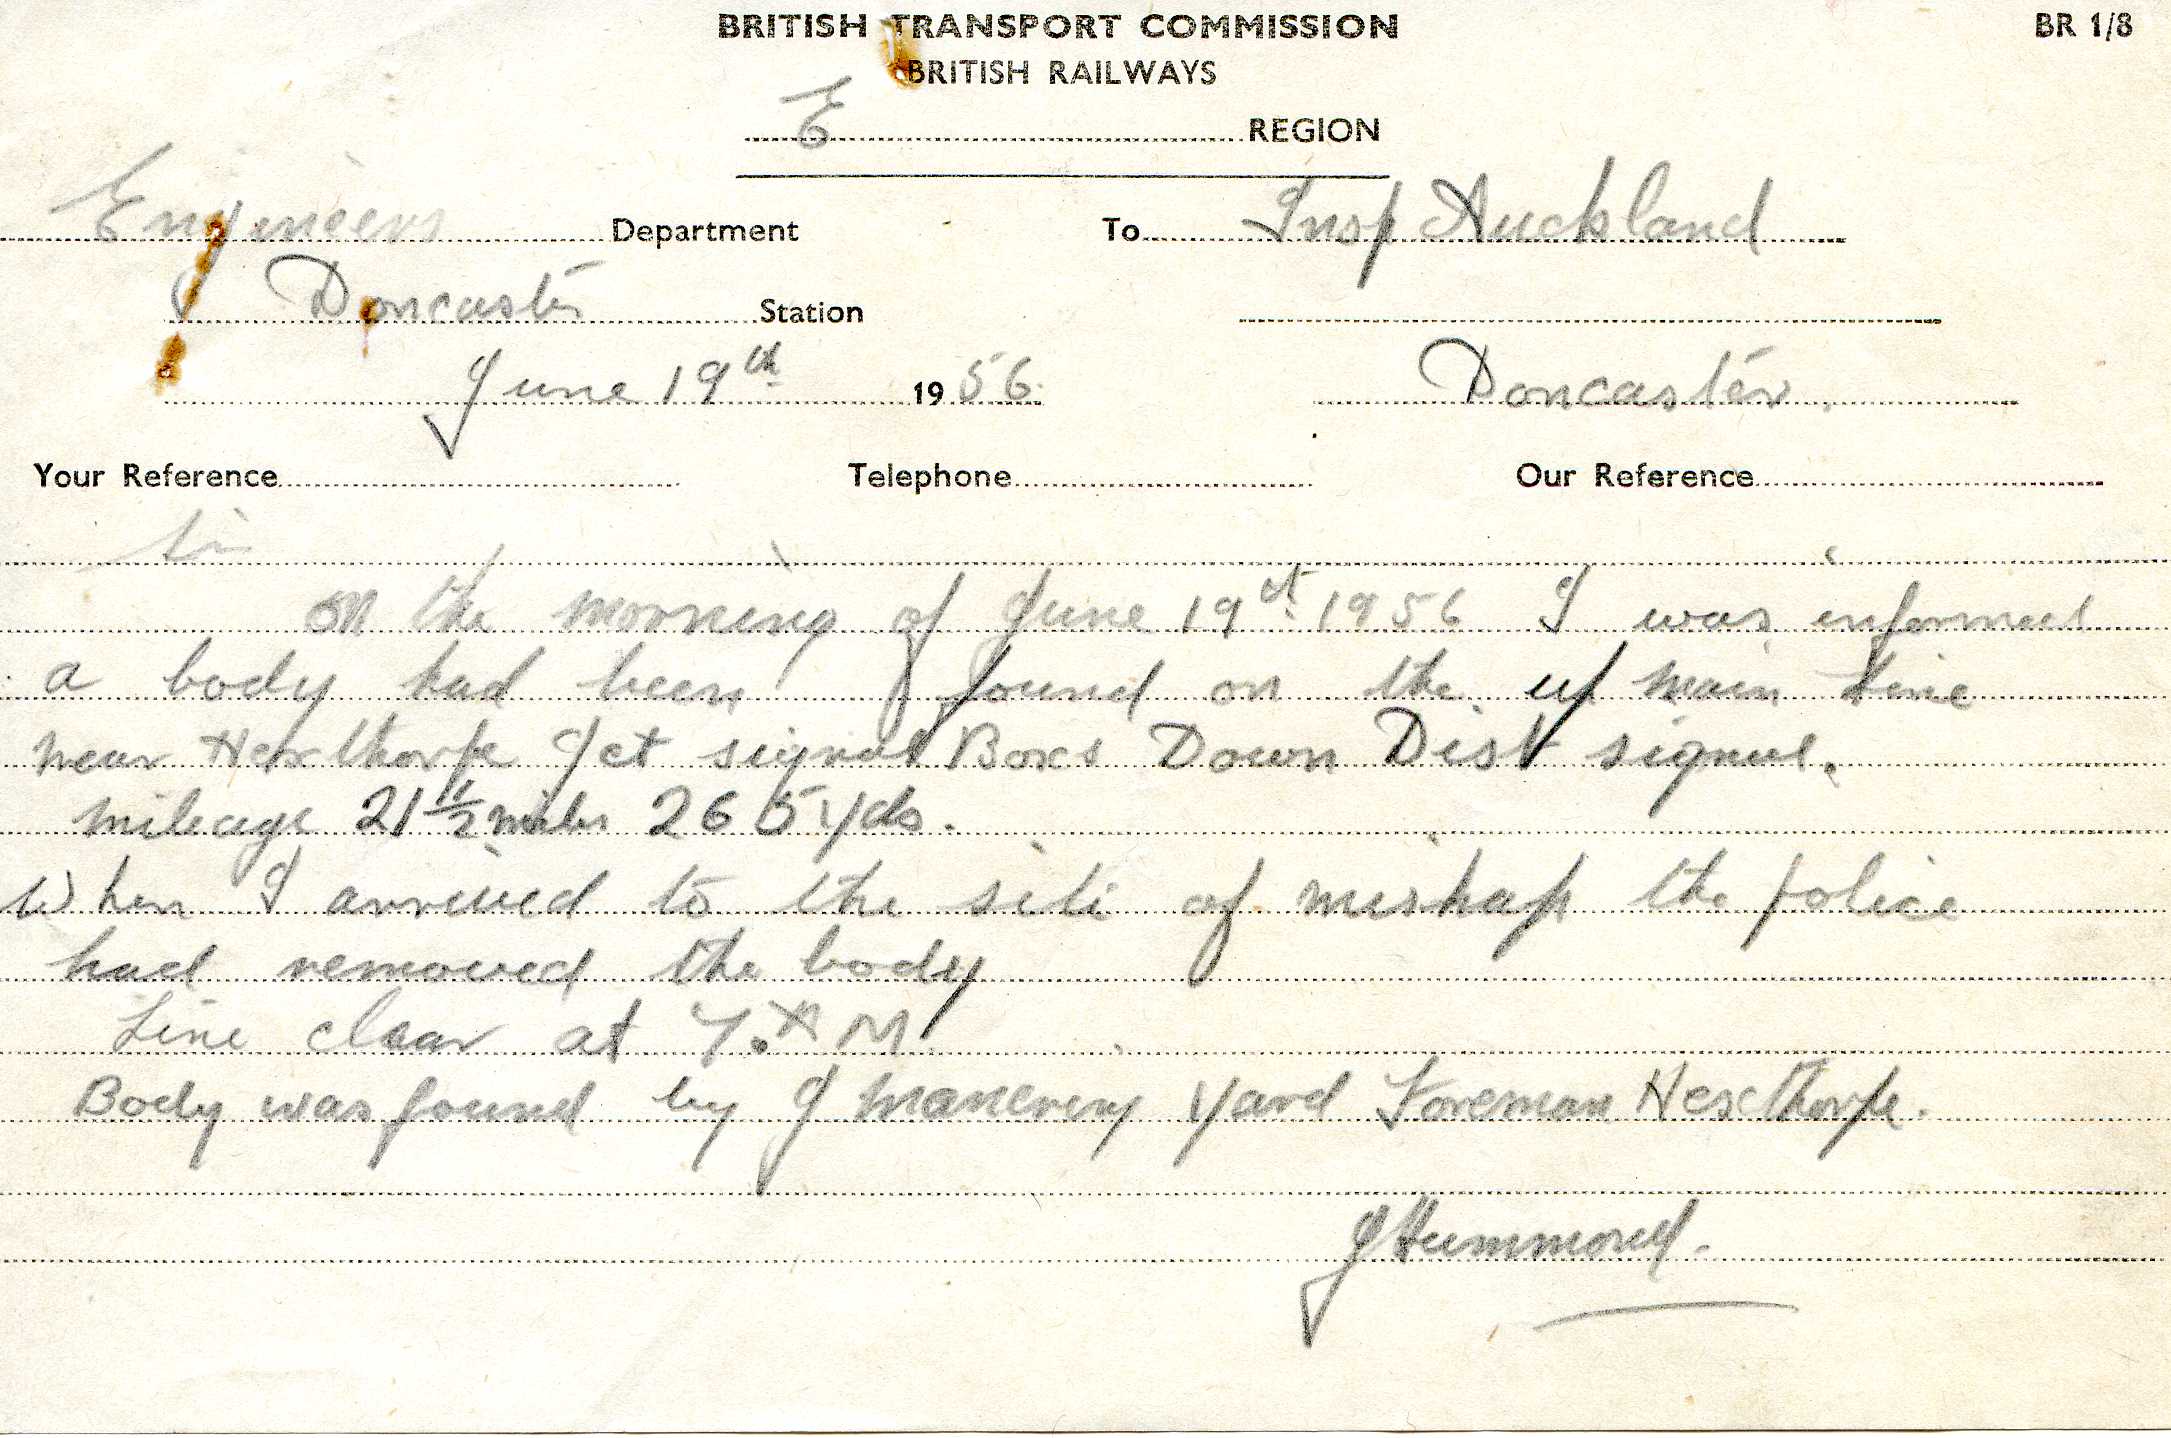 BRITISH TRANSPORT COMMISSION BR 1/8
BRITISH RAILWAYS
E REGION
Engineers Department To Insp Auckland
Doncaster Station
June 19th 1956 Doncaster.
Your Reference Telephone Our Reference
Sir
on the morning of June 19th 1956 I was informed
a body had been found on the up main line
near Hexthorpe Jct signal Boxs Down Dist signal.
mileage 21 1/2 miles 265 yds.
When I arrived to the site of mishap the police
had removed the body
Line clear at 7. A M.
Body was found by J yard Foreman Hexthorpe.
J Hammond.